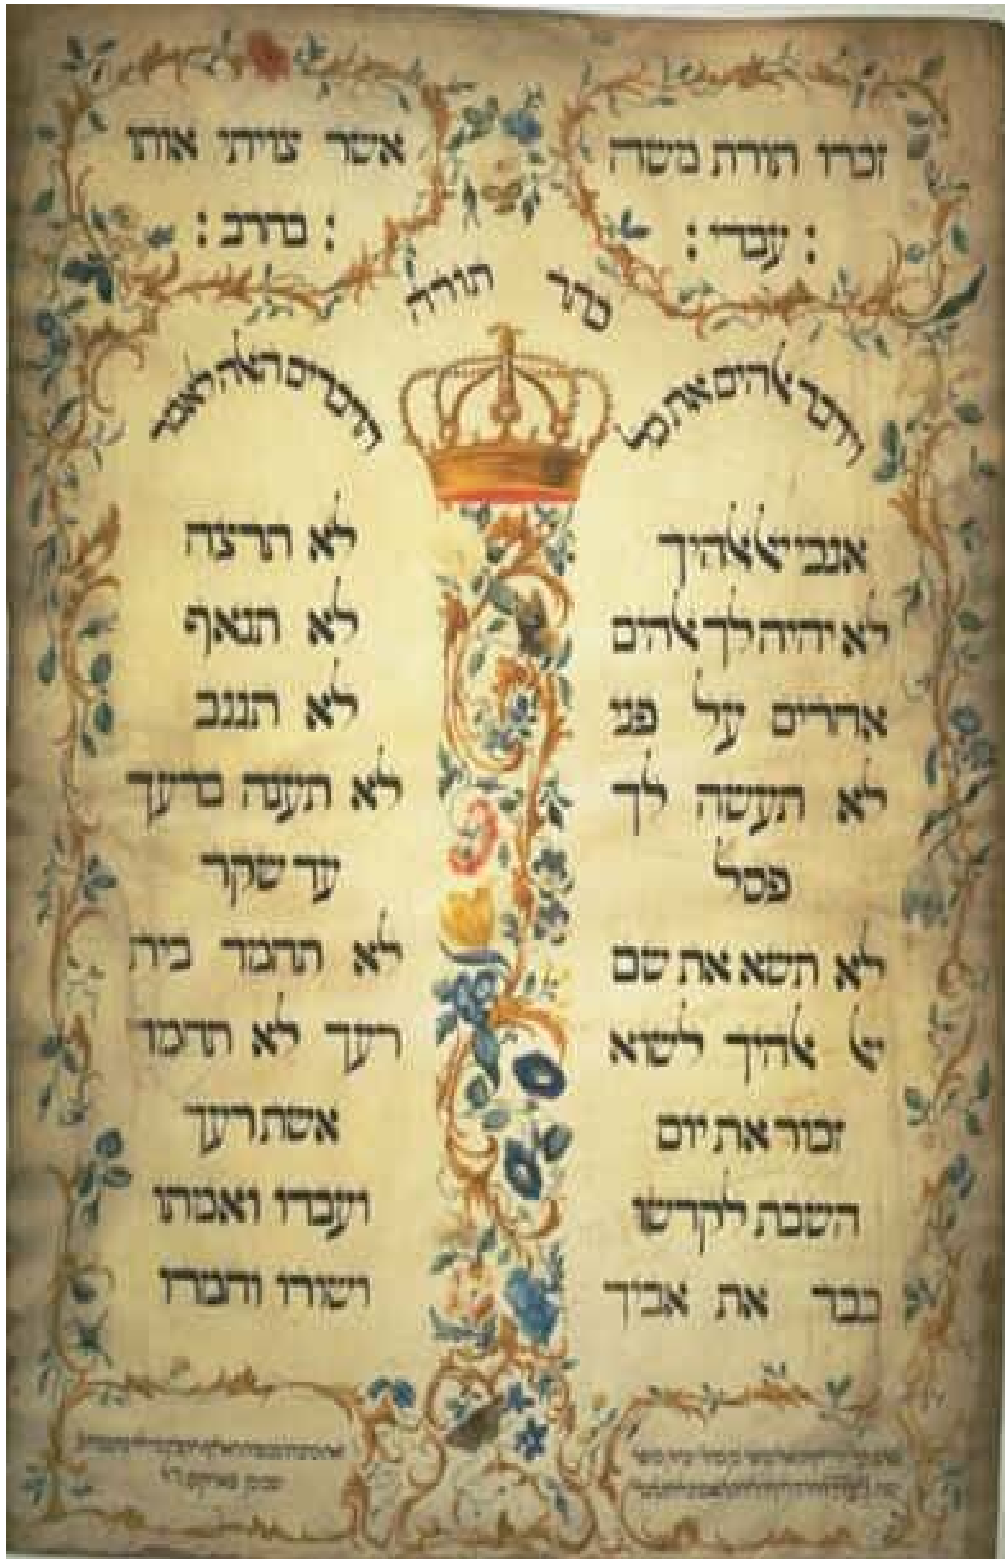 זכרו תורת משה
עבדי :
אשר צויתי אותו
: בחרב :
כתר תורה
וידבר אלהים את כל
הדברים האלה לאמר
אנכי יי אלהיך
לא יהיה לך אלהים
אחרים על פני
לא תעשה לך
פסל
לא תשא את שם
יי אלהיך לשוא
זכור את יום
השבת לקדשו
כבד את אביך
לא תרצח
לא תנאף
לא תגנב
לא תענה ברעך
עד שקר
לא תחמד בית
רעך לא תחמד
אשת רעך
ועבדו ואמתו
ושורו וחמרו